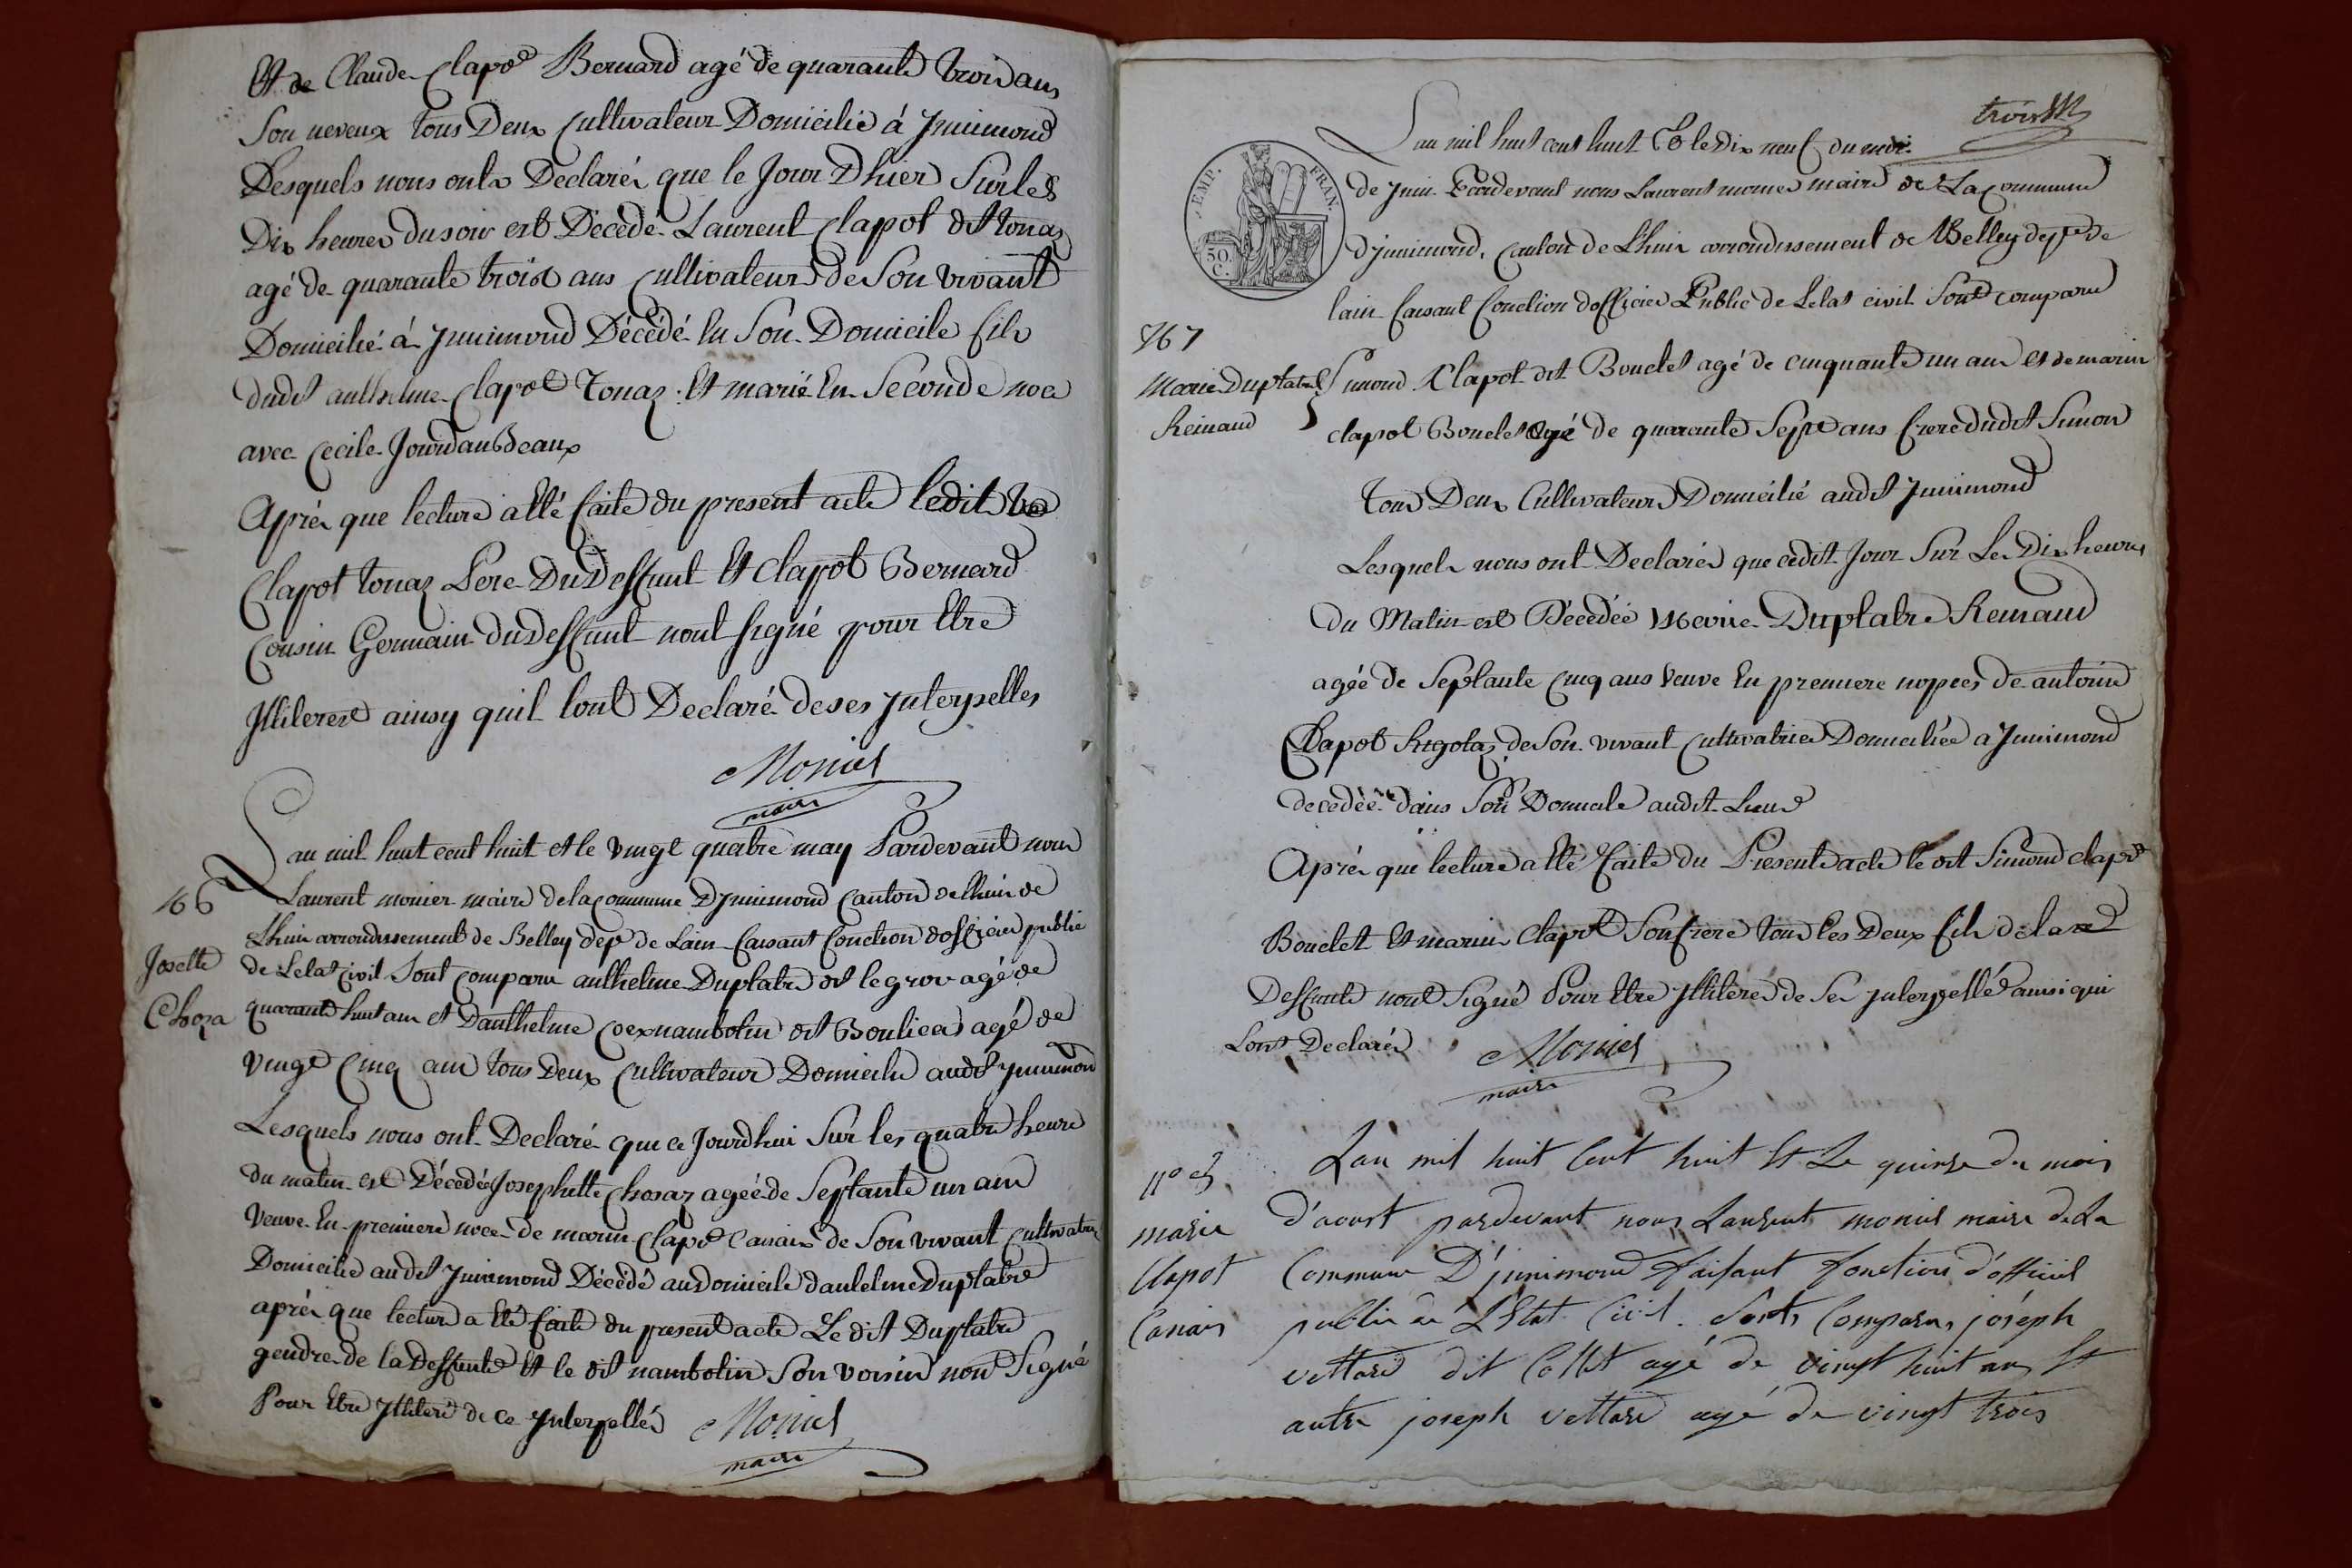 Et de Claude Clapot Bernard agé de quarante trois ans
Son neveux tous Deux Cultivateur Domicilié á Jnnimond
Lesquels nous onts Declarés que le Jour Dhier Sur les
Dix heures du soir est Décédé Laurent Clapot dit tonaz
agé de quarante trois ans Cultivateur de Son vivant
Domicilié á Jnnimond Décédé En Son Domicile fils
dudit anthelme Clapot Tonaz Et marié En Seconde noce
avec Cecile Jourdan Beaux
Aprés que lecture a Eté faite du present acte ledit
Clapot tonaz Pere Du Deffunt Et Clapot Bernard
Cousin Germain du Deffunt nont signé pour Etre
Jlliterest ainsy quil lont Declaré de ses Jnterpelles
Monier
maire
166
Josette
Choza
Lan mil huit cent huit et le vingt quatre may Pardevant nous
Laurent monier maire de la commune Djnnimond Canton de lhuis de
Lhuis arrondissement de Belley dept de Lain faisant fonction dofficier public
de Letat Civil Sont comparu anthelme Duplatre dit le gros agé de
quarante huit ans et Danthelme nambotin dit Boulicas agé de
vingt Cinq ans tous Deux Cultivateur Domicilié audit Jnnimond
Lesquels nous ont Declaré que ce Jourdhui Sur les quatre heure
du matin est Décédée Josephette Chosaz agée de Septante un ans
Veuve En premiere noce de marin Clapot Canaix de Son vivant Cultivatrice
Domicilié audit Jnnimond Décédé au domicile dantelme Duplatre
aprés que lecture a Eté faite du present acte Le dit Duplatre
gendre de la Deffunte Et le dit nambotin Son voisin nont Signé
Pour Etre Jlliteré de ce Jnterpellés
Monier
maire
trois
EMP. FRAN.
50. C.
Lan mil huit cent huit Et le Dix neuf du mois
de Juin Pardevant nous Laurent monier maire de La Commune
Djnnimond, Canton de Lhuis arrondissement de Belley dept de
lain faisant fonction dofficier Public de Letat civil Sont comparu
767
Marie Duplatre
Reinaud
Simond Clapot dit Bouclet agé de cinquante un ans et de marin
Clapot Bouclet agé de quarante Sept ans frere dudit Simon
Tous Deux Cultivateurs Domicilié audit Jnnimond
Lesquels nous ont Declarés que cedit Jour Sur Les Dix heures
du Matin est Décédée Marie Duplatre Reinaud
agée de Septante Cinq ans Veuve En premiere nopces de antoine
Clapot Rigolaz de Son vivant Cultivatrice Domiciliée a Jnnimond
decedée dans Son Domicile audit Lieu
Aprés que lecture a Eté faite du Present acte le dit Simond Clapot
Bouclet Et marin Clapot Son frere tous les Deux fils de la
Deffunte nont Signé Pour Etre Jlliterés de Ses Jnterpellé ainsi qui
Lont Declarés
Monier
maire
marie
Clapot
Canais
Lan mil huit Cent huit Et Le quinze du mois
d'aoust pardevant nous Laurent monier maire de La
Commune D'jnnimond faisant fonction d'officier
public de L'Etat Civil. Sonts Comparus joseph
vettard dit Collet agé de vingt huit ans Et
autre joseph vettard agé de vingt trois